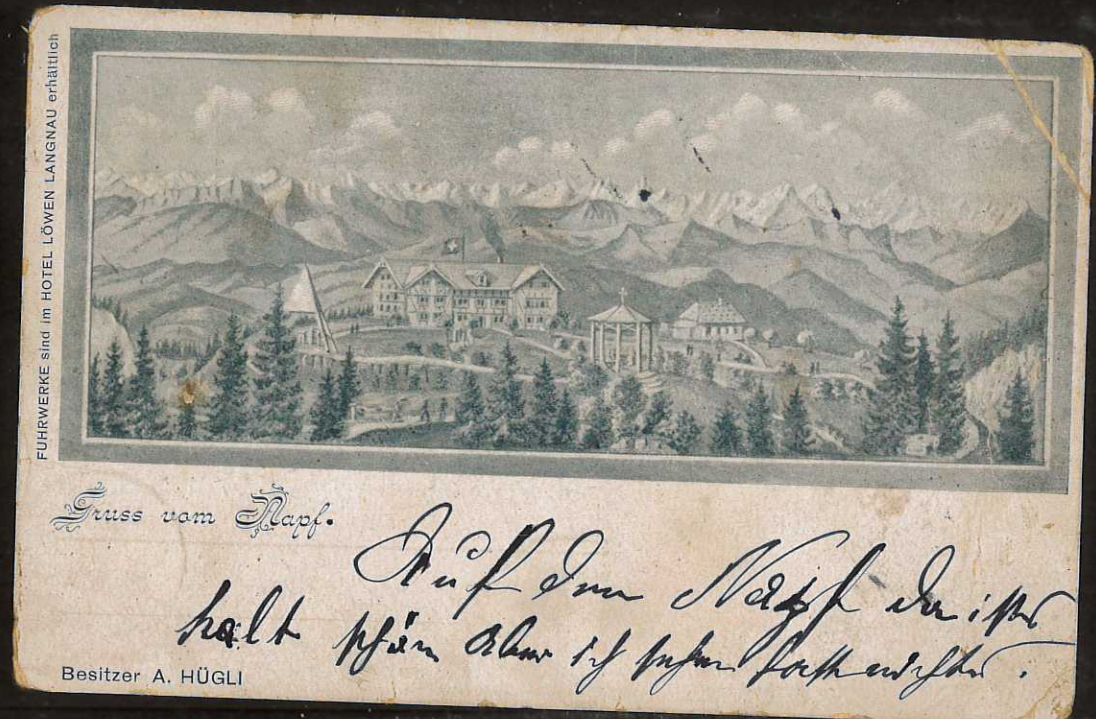 FUHRWERKE sind im HOTEL LÖWEN LANGNAU erhältlich
Gruss vom Napf.
Auf dem Napf da ists
halt schön aber ich sehe fast nichts.
Besitzer A. HÜGLI